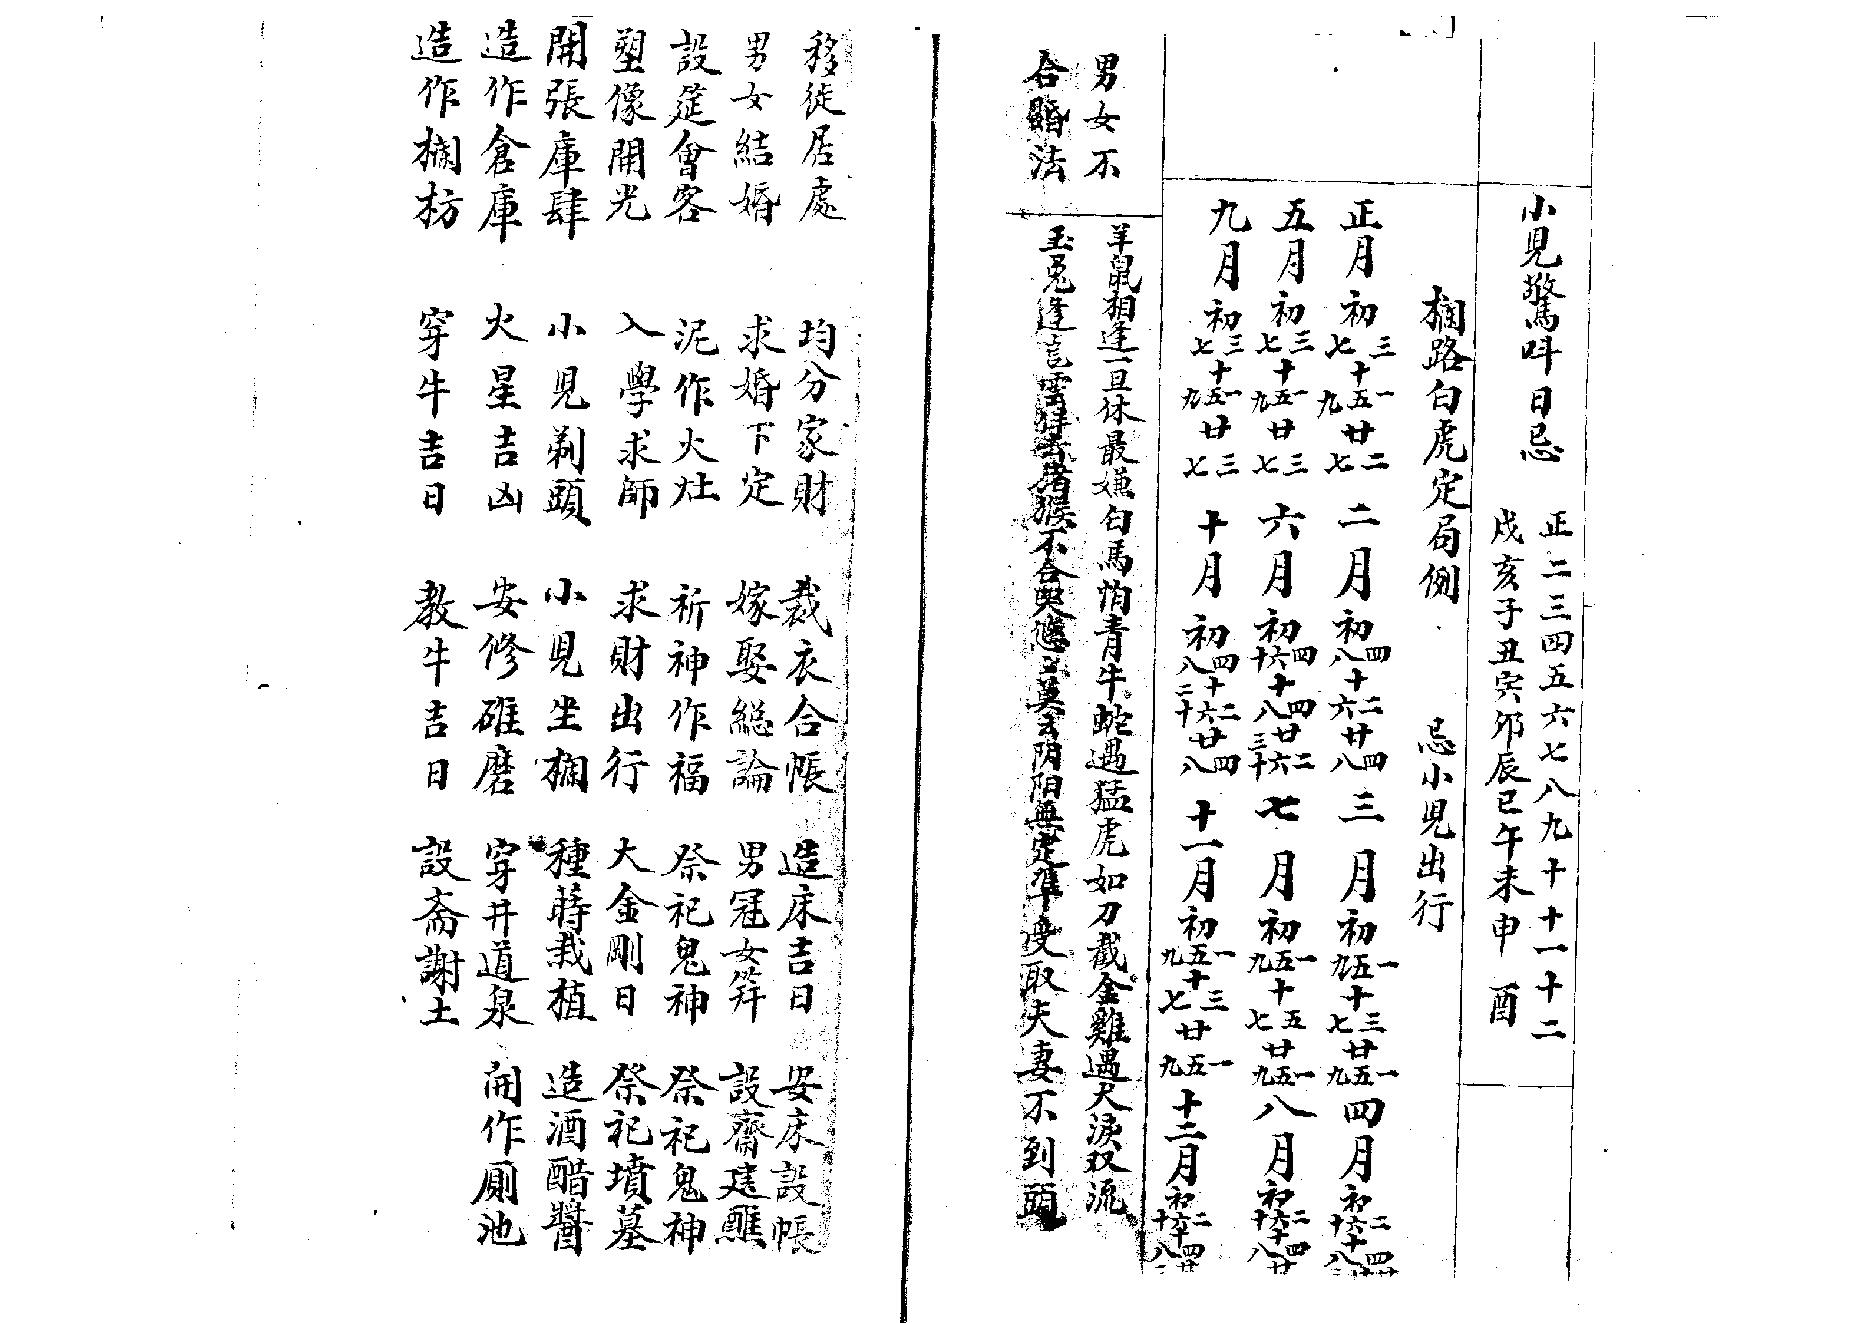 小兒驚呌日忌
正二三四五六七八九十十一十二
戍亥子丑寅卯辰巳午未申酉
欄路白虎定局例 忌小兒出行
正月初三七十一五九廿二七 二月初四八十二六廿四八 三月初一五九十三七廿一五九 四月初二六十十四八
五月初三七十一五九廿三七 六月初四六十十四八廿二六三十 七月初一五九十五七廿一五九 八月初二六十十四八廿
九月初三七十一五九廿三七 十月初四八十二六二十廿四八 十一月初一五九十三七廿一五九 十二月初二六十十四八廿
男女不
合婚法
羊鼠相逢一旦休最嫌白馬怕青牛蛇遇猛虎如刀截金雞遇犬淚双流
玉兎逢 猴不合 莫 阴阳無定準 取夫妻不到頭
移徙居處 均分家財 裁衣合帳 造床吉日 安床設帳
男女結婚 求婚下定 嫁娶総論 男冠女笄 設齋建醮
設筵會客 泥作火灶 祈神作福 祭祀鬼神 祭祀鬼神
塑像開光 入學求師 求財出行 大金剛日 祭祀墳墓
開張庫肆 小兒剃頭 小兒坐欄 種蒔栽植 造酒醋醬
造作倉庫 火星吉凶 安修碓磨 穿井道泉 開作厠池
造作欄枋 穿牛吉日 教牛吉日 設斋謝土